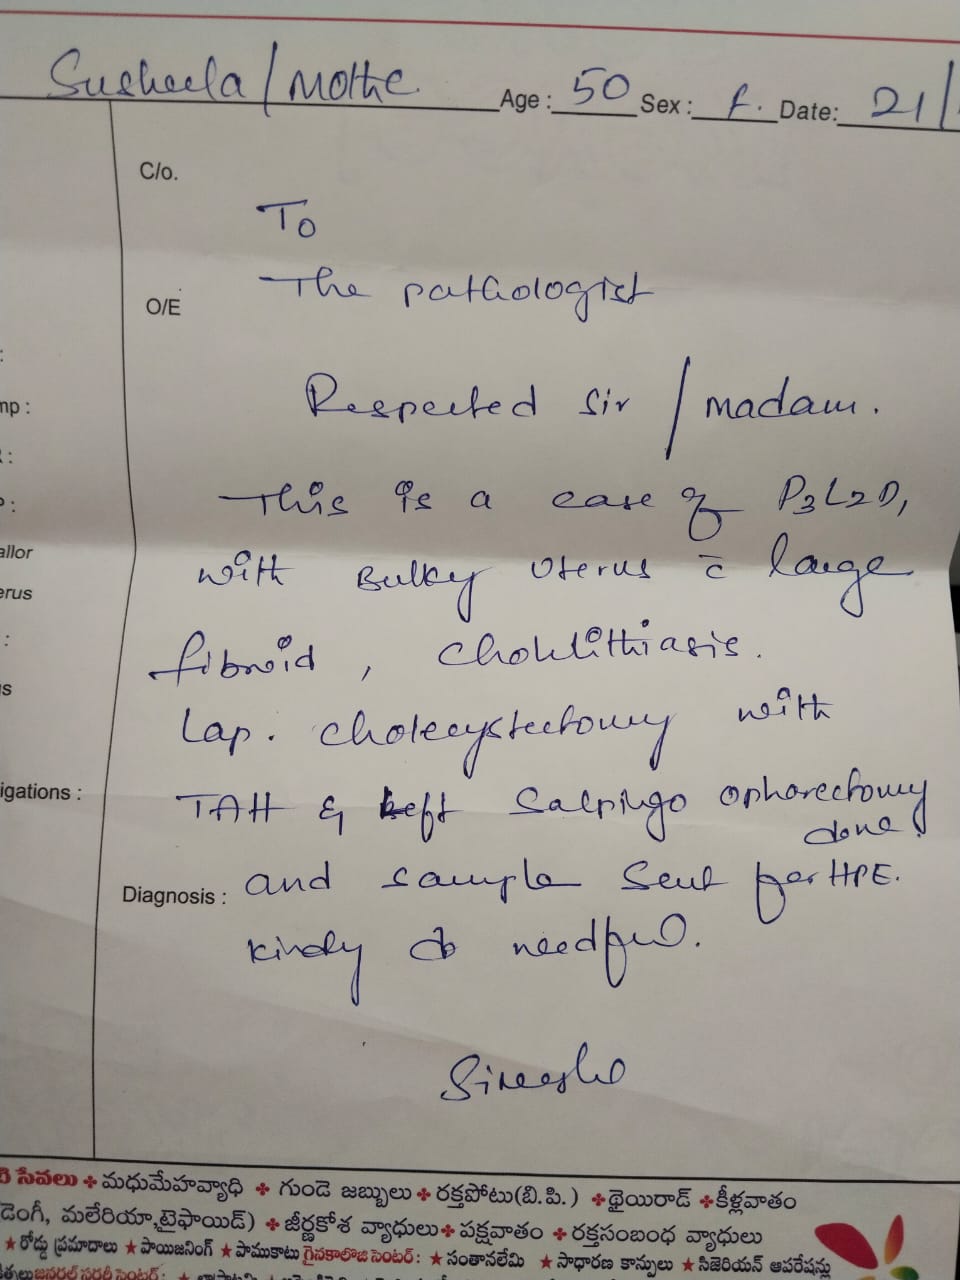 Susheela / Mothe. Age : 50 Sex : f. Date: 21/
C/o.
To
The pathologist
O/E
Respected Sir / madam.
mp :
This is a case of P3L2D1
allor
with Bulky Uterus c̄ large
erus
fibroid , Cholilithiasis.
Lap. cholecystectomy with
igations :
TAH & Left Salpingo ophorectomy
done.
Diagnosis : and sample Sent for HPE.
kindly do needful.
Sireesha
సేవలు ✤ మధుమేహవ్యాధి ✤ గుండె జబ్బులు ✤ రక్తపోటు(బి.పి.) ✤ థైయిరాడ్ ✤ కీళ్లవాతం
డెంగీ, మలేరియా,టైఫాయిడ్) ✤ జీర్ణకోశ వ్యాధులు ✤ పక్షవాతం ✤ రక్తసంబంధ వ్యాధులు
★ రోడ్డు ప్రమాదాలు ★ పాయిజనింగ్ ★ పాముకాటు గైనకాలొజి సెంటర్ : ★ సంతానలేమి ★ సాధారణ కాన్పులు ★ సిజెరియన్ ఆపరేషన్లు
జనరల్ సర్జరీ సెంటర్ :